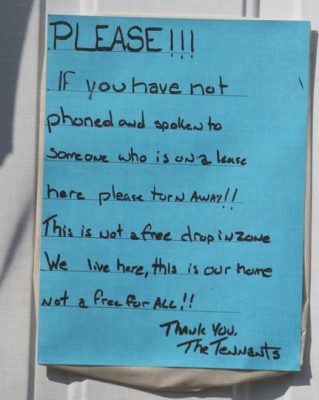 PLEASE!!!
If you have not
phoned and spoken to
someone who is on a lease
here please turn AWAY!!
This is not a free drop in zone
We live here, this is our home
not a free for ALL!!
THANK YOU,
The Tennants